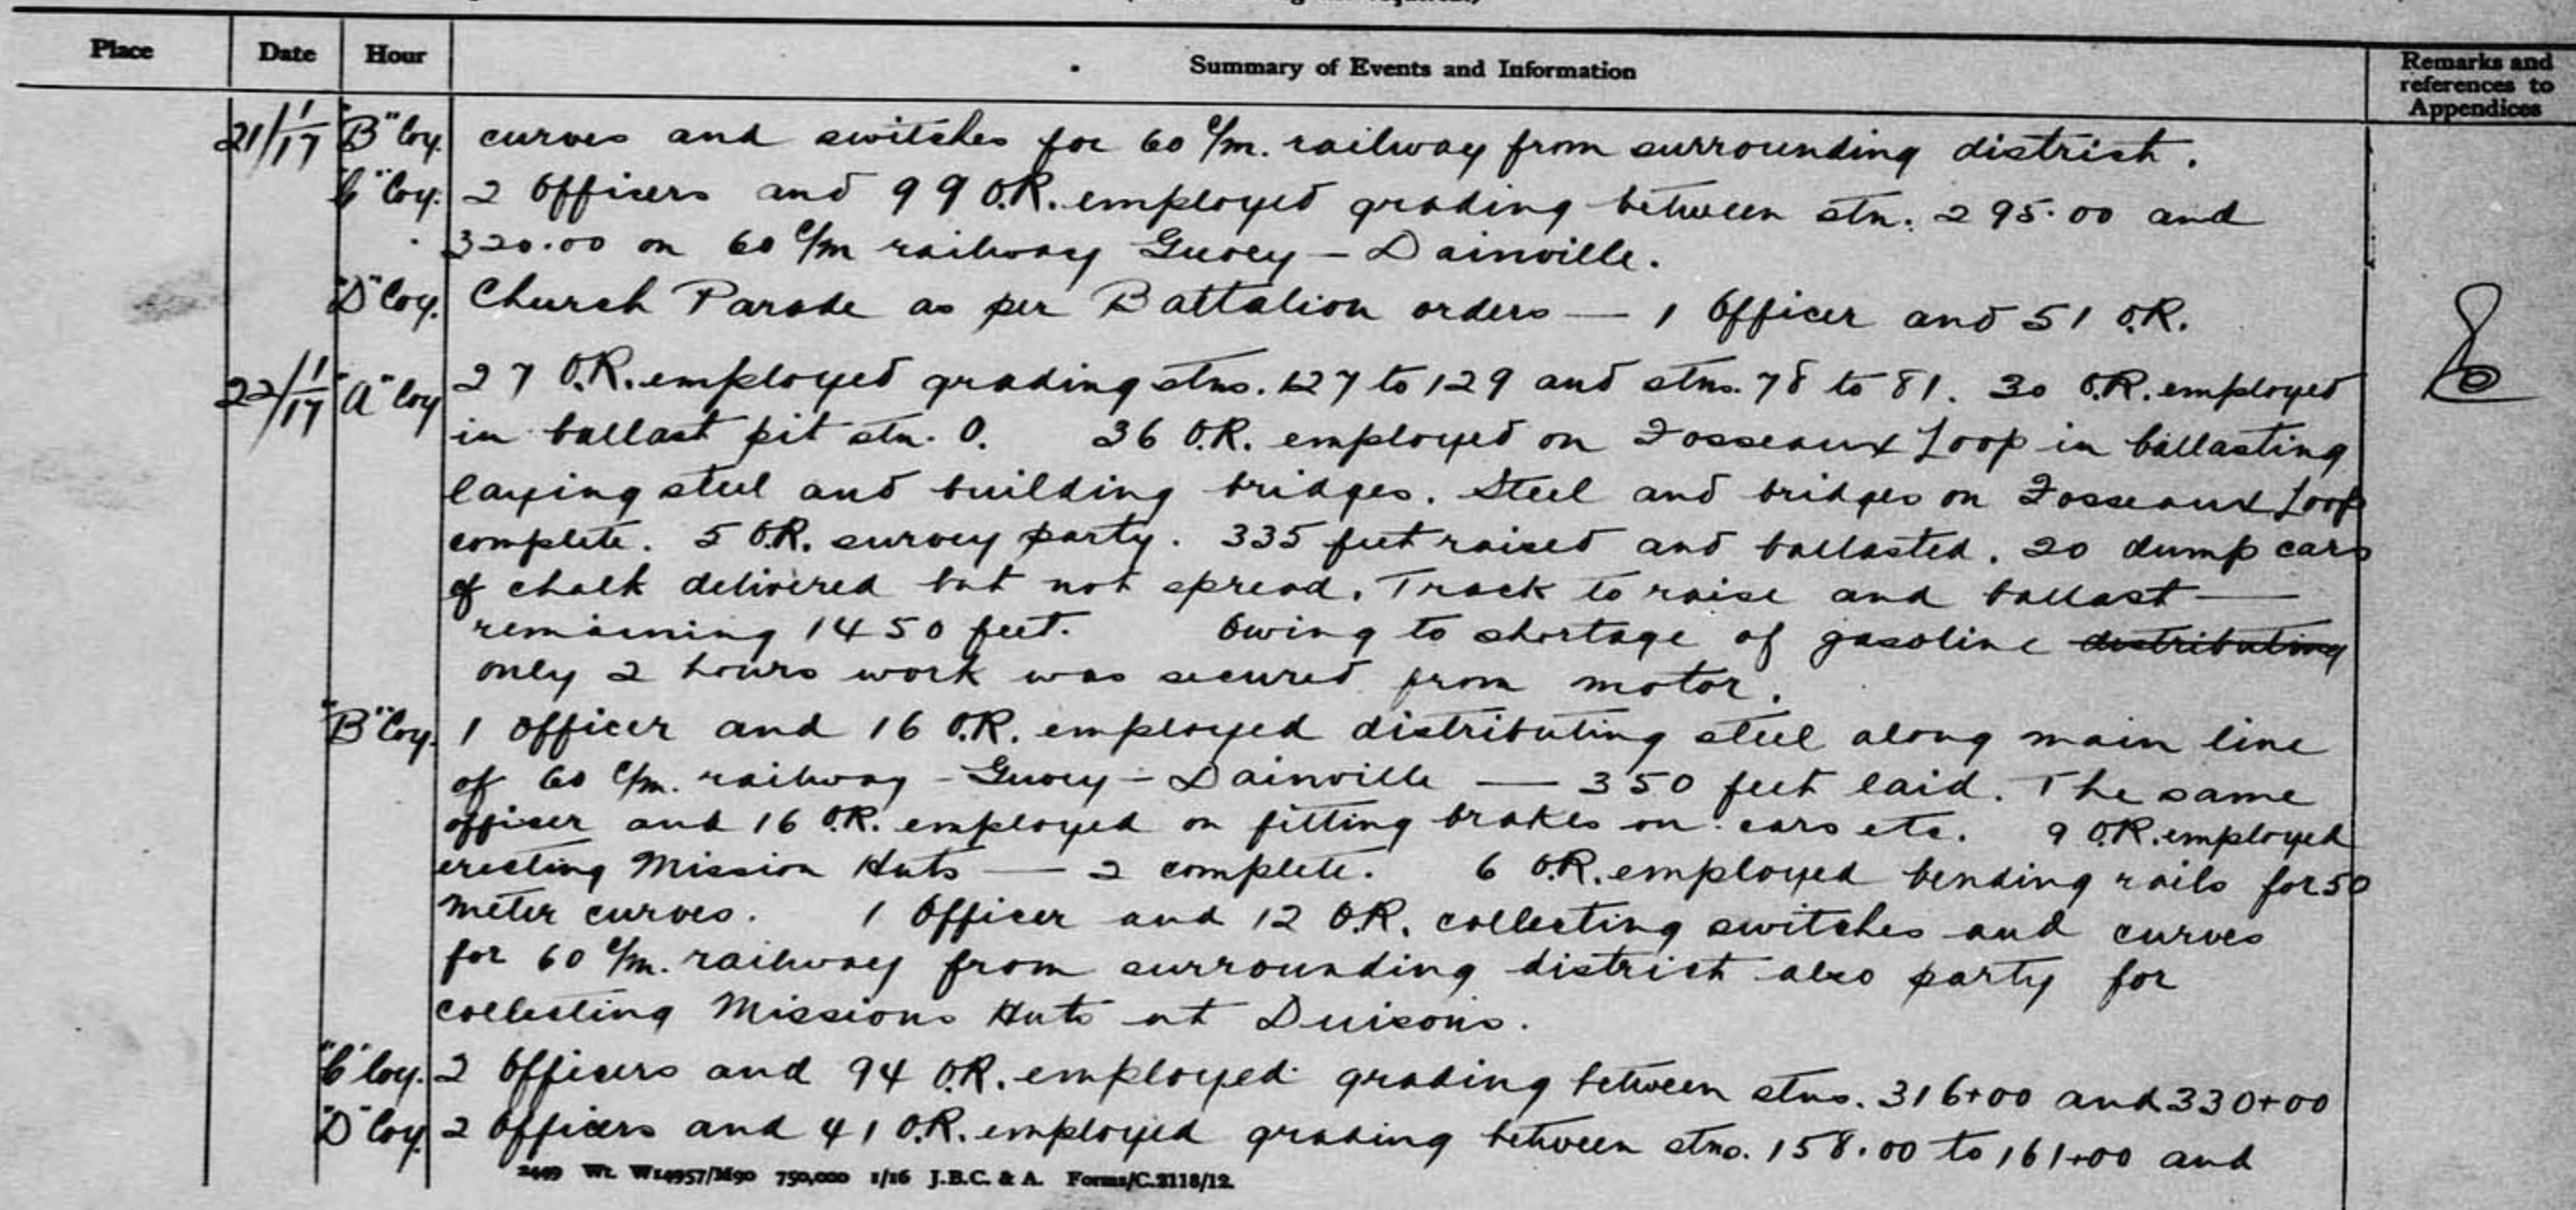 Place Date Hour Summary of Events and Information Remarks and references to Appendices
21/1/17 "B" Coy. curves and switches for 60 c/m. railway from surrounding district.
"C" Coy. 2 Officers and 99 O.R. employed grading between stn. 295.00 and
320.00 on 60 c/m railway Gouy - Dainville.
"D" Coy. Church Parade as per Battalion orders — 1 Officer and 51 O.R.
22/1/17 "A" Coy 27 O.R. employed grading stns. 127 to 129 and stns. 78 to 81. 30 O.R. employed
in ballast pit stn. 0. 36 O.R. employed on Fosseaux Loop in ballasting
laying steel and building bridges. Steel and bridges on Fosseaux Loop
complete. 5 O.R. survey party. 335 feet raised and ballasted. 20 dump cars
of chalk delivered but not spread. Track to raise and ballast —
remaining 1450 feet. Owing to shortage of gasoline distributing
only 2 hours work was secured from motor.
"B" Coy. 1 Officer and 16 O.R. employed distributing steel along main line
of 60 c/m. railway - Gouy - Dainville — 350 feet laid. The same
officer and 16 O.R. employed on fitting brakes on cars etc. 9 O.R. employed
erecting Mission Huts — 2 complete. 6 O.R. employed bending rails for 50
meter curves. 1 Officer and 12 O.R. collecting switches and curves
for 60 c/m. railway from surrounding district also party for
collecting Missions Huts at Duisons.
"C" Coy. 2 Officers and 94 O.R. employed grading between stns. 316+00 and 330+00
"D" Coy. 2 Officers and 41 O.R. employed grading between stns. 158.00 to 161+00 and
2449 Wt. W14957/M90 750,000 1/16 J.B.C. & A. Forms/C.2118/12.